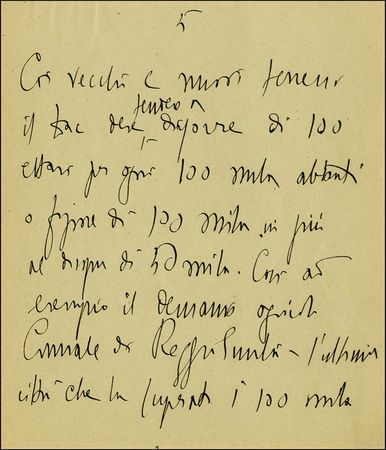 5
Coi vecchi e nuovi terreni
il
deve disporre di 100
ettari per ogni 100 mila abitanti
o frazione di 100 mila in più
al disopra di 50 mila. Così ad
esempio il demanio agricolo
Comunale di Reggio Emilia - l'ultima
città che ha superato i 100 mila